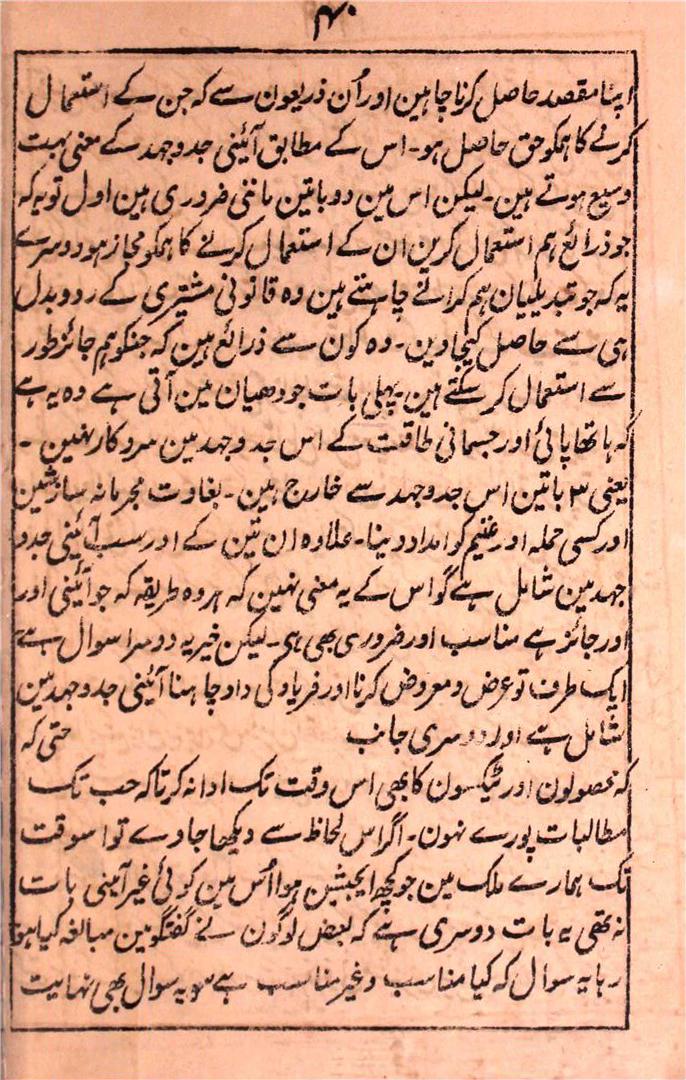 ۴۰
اپنا مقصد حاصل کرنا چاہین اور اُن ذریعون سے کہ جن کے استعمال
کرنے کا ہمکو حق حاصل ہو۔ اس کے مطابق آئینی جدوجہد کے معنی بہت
وسیع ہوتے ہین۔ لیکن اس مین دو باتین ماننی ضروری ہین اول تو یہ کہ
جو ذرائع ہم استعمال کرین ان کے استعمال کرنے کا ہمکو مجاز ہو دوسرے
یہ کہ جو تبدیلیان ہم کرانے چاہتے ہین وہ قانونی مشتری کے ردوبدل
ہی سے حاصل کیجاوین۔ وہ کون سے ذرائع ہین کہ جنکو ہم جائز طور
سے استعمال کر سکتے ہین۔ پہلی بات جو دھیان مین آتی ہے وہ یہ ہے
کہ ہاتھا پائی اور جسمانی طاقت کے اس جدوجہد مین سروکار نہین۔
یعنی ۳ باتین اس جدوجہد سے خارج ہین۔ بغاوت مجرمانہ سازشین
اور کسی حملہ اور غنیم کو امداد دینا۔ علاوہ ان تین کے اور سب آئینی جدو
جہد مین شامل ہے گو اس کے یہ معنی نہین کہ ہر وہ طریقہ کہ جو آئینی اور
اور جائز ہے مناسب اور ضروری بھی ہی۔ لیکن خیر یہ دوسرا سوال ہے
ایک طرف تو عرض و معروض کرنا اور فریاد کی داد چاہنا آئینی جدوجہد مین
شامل ہے اور دوسری جانب حتی کہ
کہ محصولون اور ٹیکسون کا بھی اس وقت تک ادا نہ کرنا کہ جب تک
مطالبات پورے نہون۔ اگر اس لحاظ سے دیکھا جاوے تو اسوقت
تک ہمارے ملک مین جو کچھ ایجیٹیشن ہوا اُس مین کوئی غیر آئینی بات
نہ تھی یہ بات دوسری ہے کہ بعض لوگون نے گفتگو مین مبالغہ کیا ہو
رہا یہ سوال کہ کیا مناسب و غیر مناسب ہے سو یہ سوال بھی نہایت